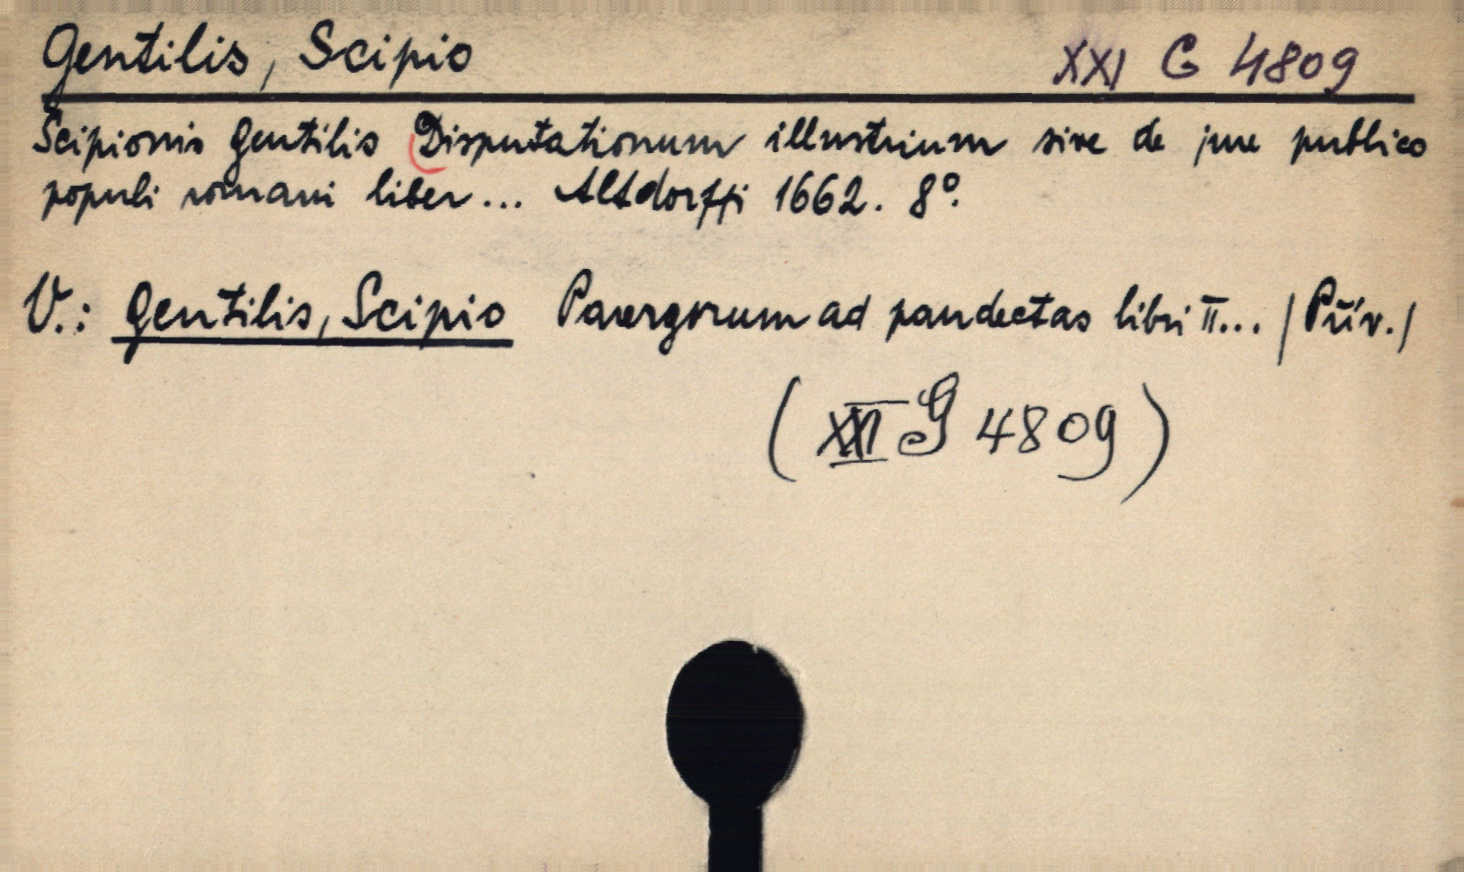 Gentilis, Scipio XXI G 4809
Scipionis Gentilis Disputationum illustrium sive de jure publico
populi romani liber... Altdorffi 1662. 8°.
V.: Gentilis, Scipio Parergorum ad pandectas libri II... /Přív./
(XXI G 4809)